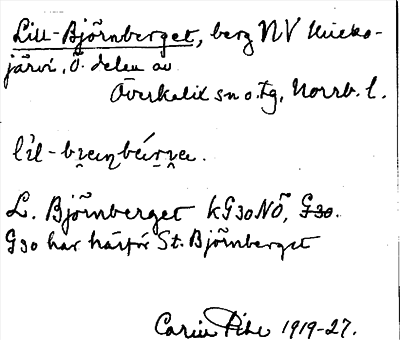 Lill-Björnberget, berg NV Mieko-
järvi, ö. delen av
Överkalix sn o. tg, Norrb. l.
L. Björnberget kG30NÖ, G30.
G30 har härför St. Björnberget
Carin Pihl 1919-27.